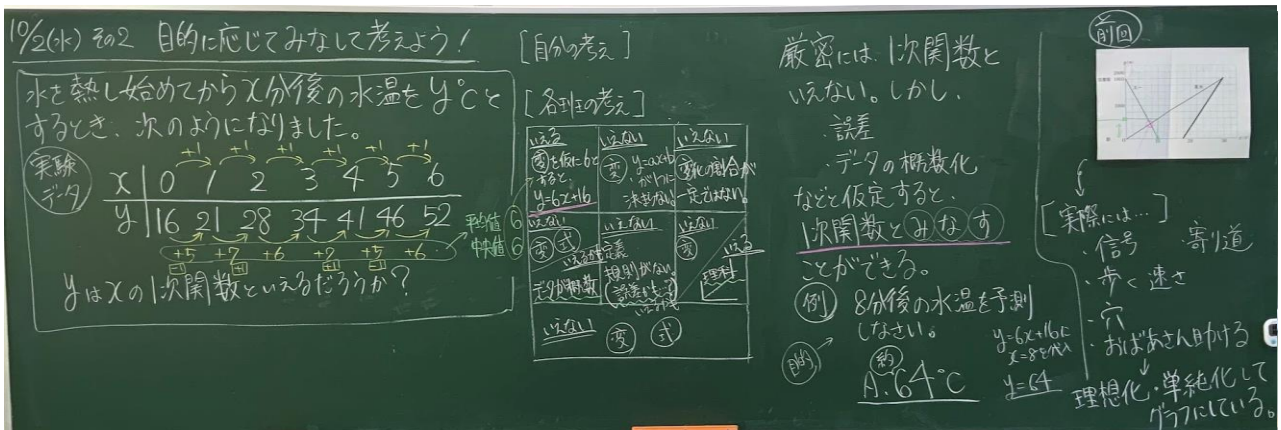 10/2(水) その2 目的に応じてみなして考えよう!
水を熱し始めてからx分後の水温をy℃と
するとき、次のようになりました。
実験
データ
+1 +1 +1 +1 +1 +1
x 0 1 2 3 4 5 6
y 16 21 28 34 41 46 52
+5 +7 +6 +7 +5 +6
-1 +1 +1 -1
平均値 6
中央値 6
yはxの1次関数といえるだろうか?
[自分の考え]
[各班の考え]
いえる
変を仮に6と
すると、
y=6x+16
いえない
変 y=ax+b
が1つに
決まらない。
いえない
変化の割合が
一定ではない。
いえない
変 式
いえる
データが概数
いえない
定義
規則がない。
いえない
変
いえる
理科
いえない
変 式
厳密には、1次関数と
いえない。しかし、
・誤差
・データの概数化
などと仮定すると、
1次関数とみなす
ことができる。
例 8分後の水温を予測
しなさい。
目的
約
A.64℃
y=6x+16に
x=8を代入
y=64
前回
[実際には…]
・信号
寄り道
・歩く速さ
・穴
・おばあさん助ける
理想化・単純化して
グラフにしている。